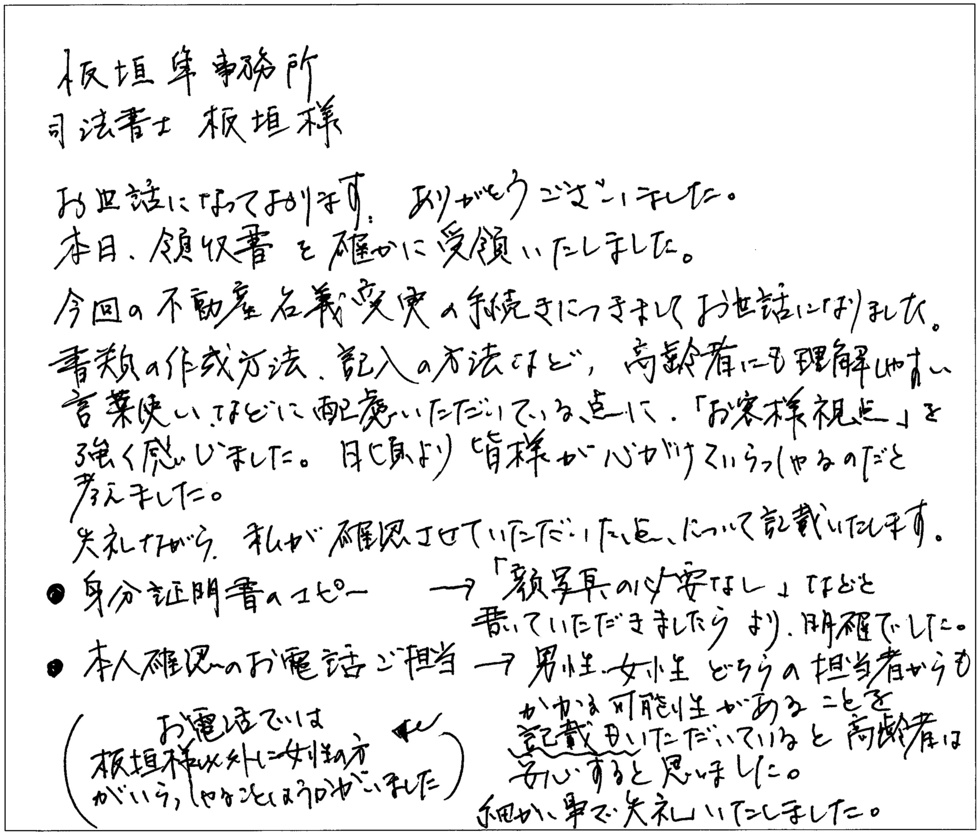 板垣隼事務所
司法書士 板垣様
お世話になっております。ありがとうございました。
本日、領収書を確かに受領いたしました。
今回の不動産名義変更の手続きにつきましてお世話になりました。
書類の作成方法、記入の方法など、高齢者にも理解しやすい
言葉使いなどに配慮いただいている点に、「お客様視点」を
強く感じました。日頃より皆様が心がけていらっしゃるのだと
考えました。
失礼ながら、私が確認させていただいた点、について記載いたします。
● 身分証明書のコピー → 「顔写真の必要なし」などと
書いていただきましたらより、明確でした。
● 本人確認のお電話ご担当 → 男性、女性 どちらの担当者からも
かかる可能性があることを
記載もいただいていると高齢者は
安心すると思いました。
(お電話では
板垣様以外に女性の方
がいらっしゃることはうかがいました)
細かい事で失礼いたしました。